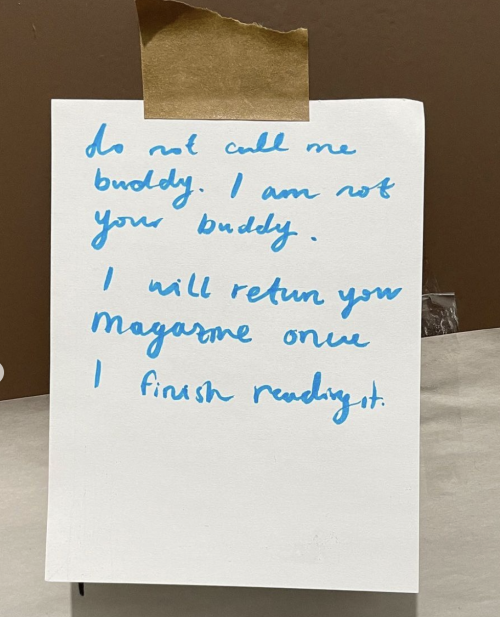 do not call me
buddy. I am not
your buddy.
I will return your
magazine once
I finish reading it.